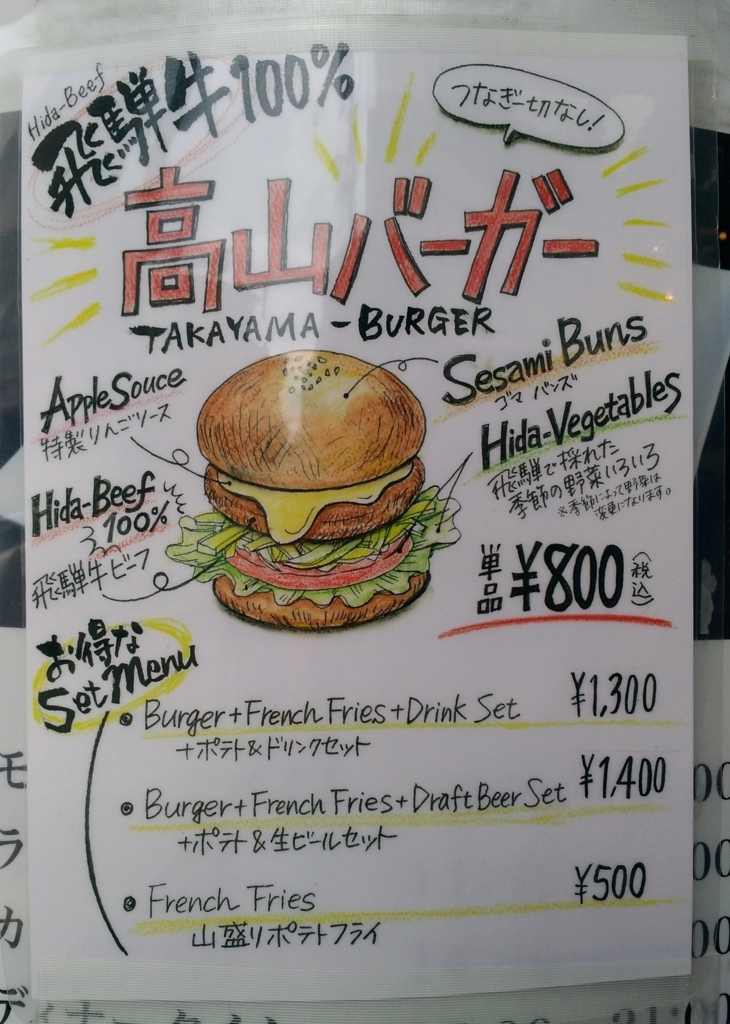 Hida-Beef
飛騨牛100%
つなぎ一切なし!
高山バーガー
TAKAYAMA-BURGER
Apple Souce
特製りんごソース
Sesami Buns
ゴマ バンズ
Hida-Vegetables
飛騨で採れた
季節の野菜いろいろ
※季節によって野菜は
変更になります。
Hida-Beef
100%
飛騨牛ビーフ
単品 ¥800 (税込)
お得な
Set Menu
• Burger+French Fries+Drink Set ¥1,300
+ポテト&ドリンクセット
• Burger+French Fries+Draft Beer Set ¥1,400
+ポテト&生ビールセット
• French Fries ¥500
山盛りポテトフライ
モ
ラ
カ
デ
00
00
00